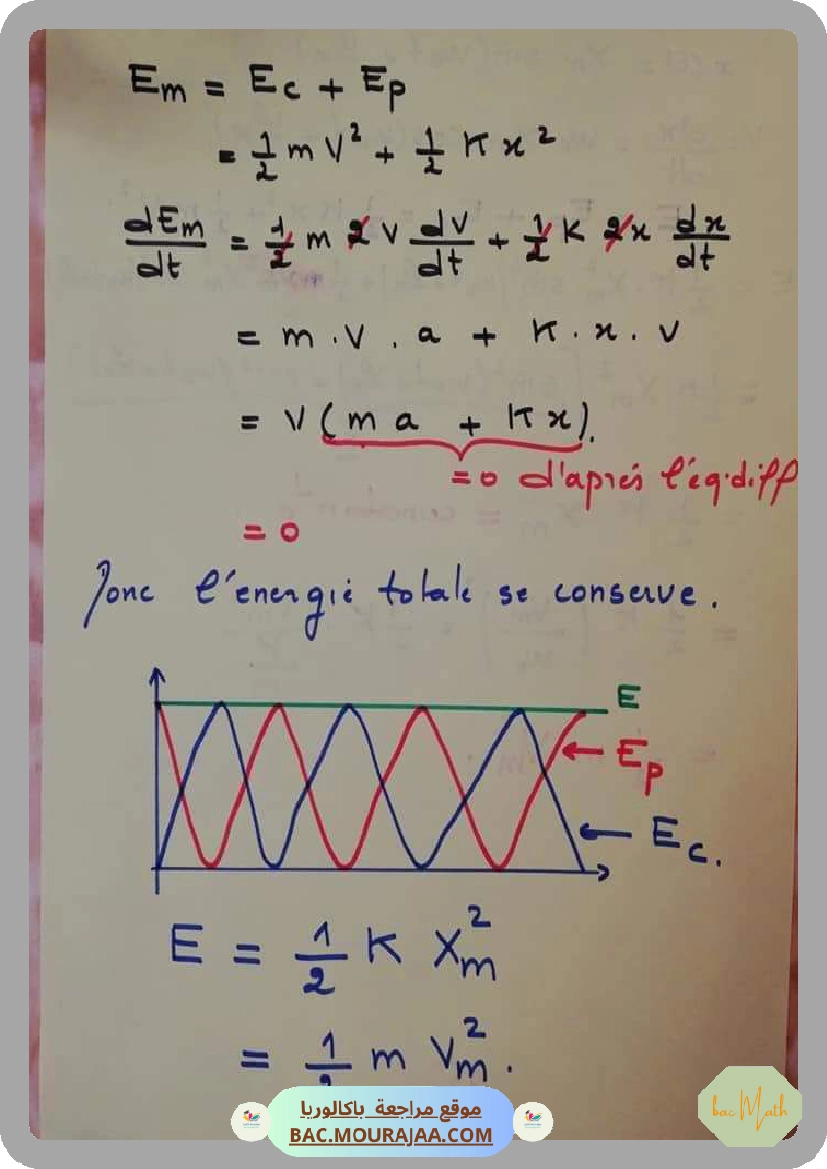 Em = Ec + Ep
= 1/2 m V² + 1/2 K x²
dEm/dt = 1/2 m 2 V dv/dt + 1/2 K 2x dx/dt
= m . V . a + K . x . v
= V (m a + K x).
= 0 d'après l'éq.diff
= 0
Donc l'énergie totale se conserve.
E
Ep
Ec.
E = 1/2 K Xm²
= 1/2 m Vm².
موقع مراجعة باكالوريا
BAC.MOURAJAA.COM
bac Math